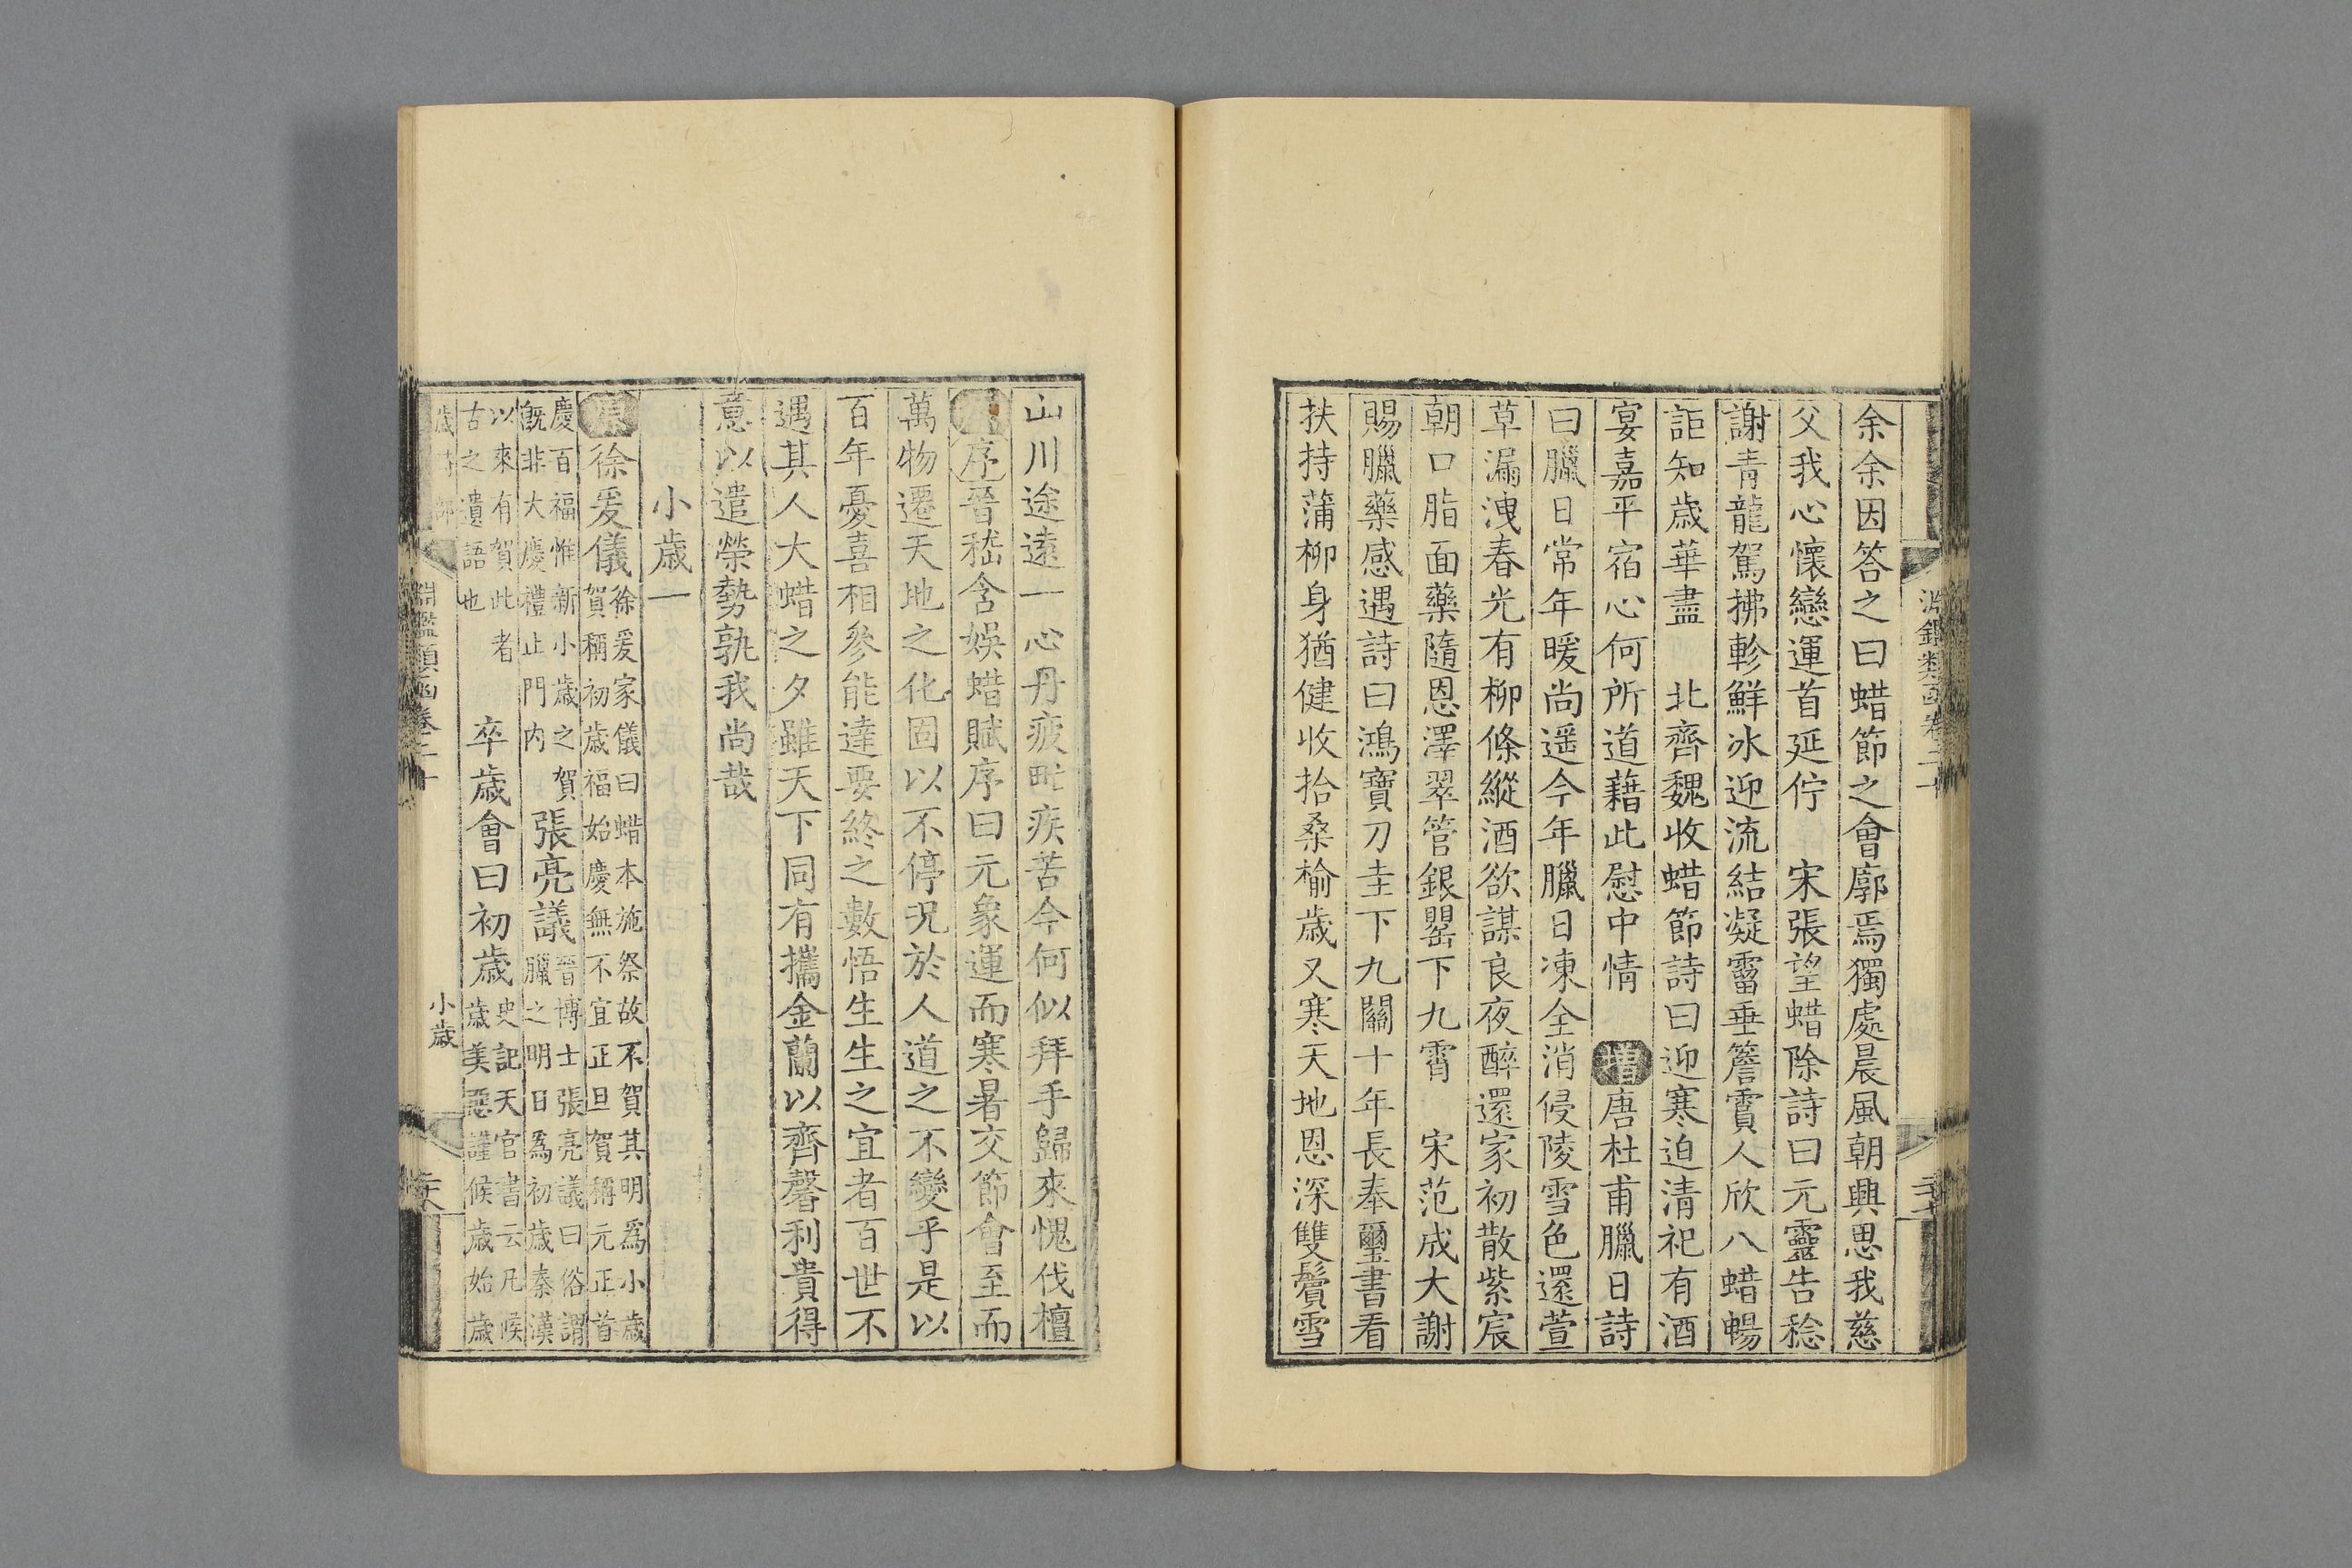 余余因答之曰蜡節之會廓焉獨處晨風朝興思我慈
父我心懷戀運首延佇　宋張望蜡除詩曰元靈告稔
謝青龍駕拂軫鮮冰迎流結凝霤垂簷霣人欣八蜡暢
詎知歲華盡　北齊魏收蜡節詩曰迎寒迫清祀有酒
宴嘉平宿心何所道藉此慰中情　增唐杜甫臘日詩
曰臘日常年暖尚遥今年臘日凍全消侵陵雪色還萱
草漏洩春光有柳條縱酒欲謀良夜醉還家初散紫宸
朝口脂面藥隨恩澤翠管銀罌下九霄　宋范成大謝
賜臘藥感遇詩曰鴻寶刀圭下九關十年長奉璽書看
扶持蒲柳身猶健收拾桑榆歲又寒天地恩深雙鬢雪
山川途遠一心丹疲甿疾苦今何似拜手歸來愧伐檀
序晉嵇含娛蜡賦序曰元象運而寒暑交節會至而
萬物遷天地之化固以不停況於人道之不變乎是以
百年憂喜相參能達要終之數悟生生之宜者百世不
遇其人大蜡之夕雖天下同有攜金蘭以齊馨利貴得
意以遣榮勢孰我尚哉
小歲一
原徐爰儀徐爰家儀曰蜡本施祭故不賀其明爲小歲
賀稱初歲福始慶無不宜正旦賀稱元正首
慶百福惟新小歲之賀
旣非大慶禮止門内
張亮議晉博士張亮議曰俗謂
臘之明日爲初歲秦漢
以來有賀此者
古之遺語也
卒歲會曰初歲史記天官書云凡候
歲美惡謹候歲始歲
淵鑑類函卷二十
小歲